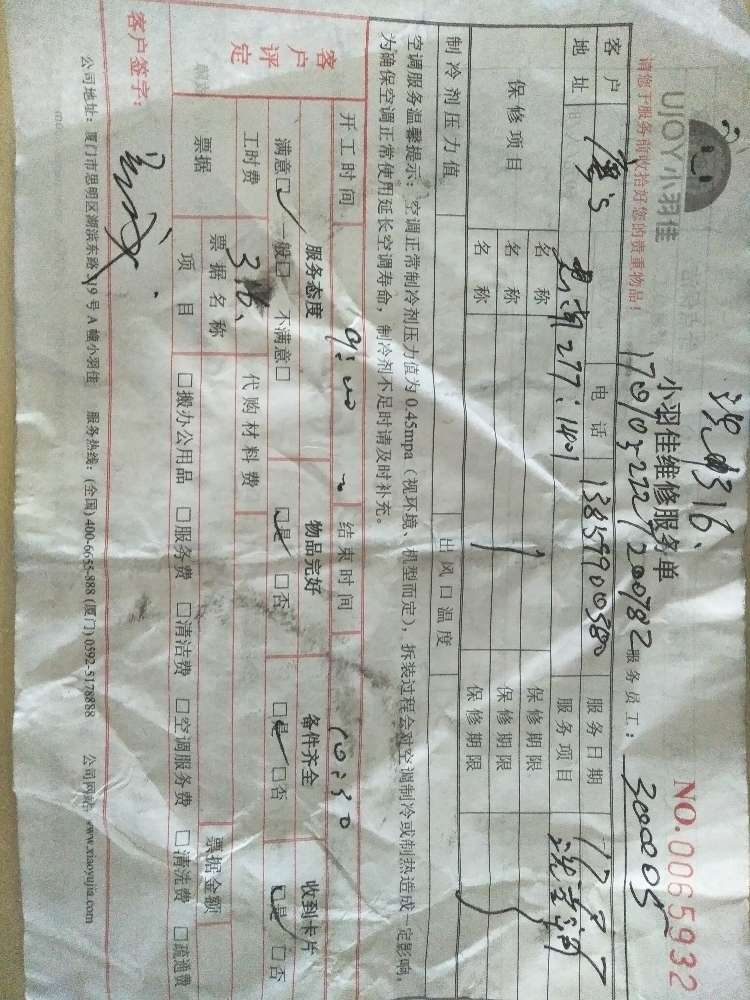 UJOY小羽佳
请您于服务前收拾好您的贵重物品！
小羽佳维修服务单
NO.0065932
17090321227200782 服务员工：300005
客户 电话 13859900580 服务日期 17.9.7
地址 277:1401 服务项目
保修项目 名称 保修期限
名称 保修期限
名称 保修期限
制冷剂压力值 出风口温度
空调服务温馨提示：空调正常制冷剂压力值为0.45mpa（视环境、机型而定），拆装过程会对空调制冷或制热造成一定影响，
为确保空调正常使用延长空调寿命，制冷剂不足时请及时补充。
开工时间 9:00 ~ 结束时间 10:30
客户评定 服务态度 物品完好 备件齐全 收到卡片
满意☑ 一般□ 不满意□ ☑是 □否 ☑是 □否 ☑是 □否
工时费 316 代购材料费
票据 票据名称 票据金额
项目 □搬办公用品 □服务费 □清洁费 □空调服务费 □清洗费 □疏通费
客户签字：
公司地址：厦门市思明区湖滨东路19号A幢小羽佳 服务热线：(全国)400-6655-888 (厦门)0592-5178888 公司网站：www.xiaoyujia.com